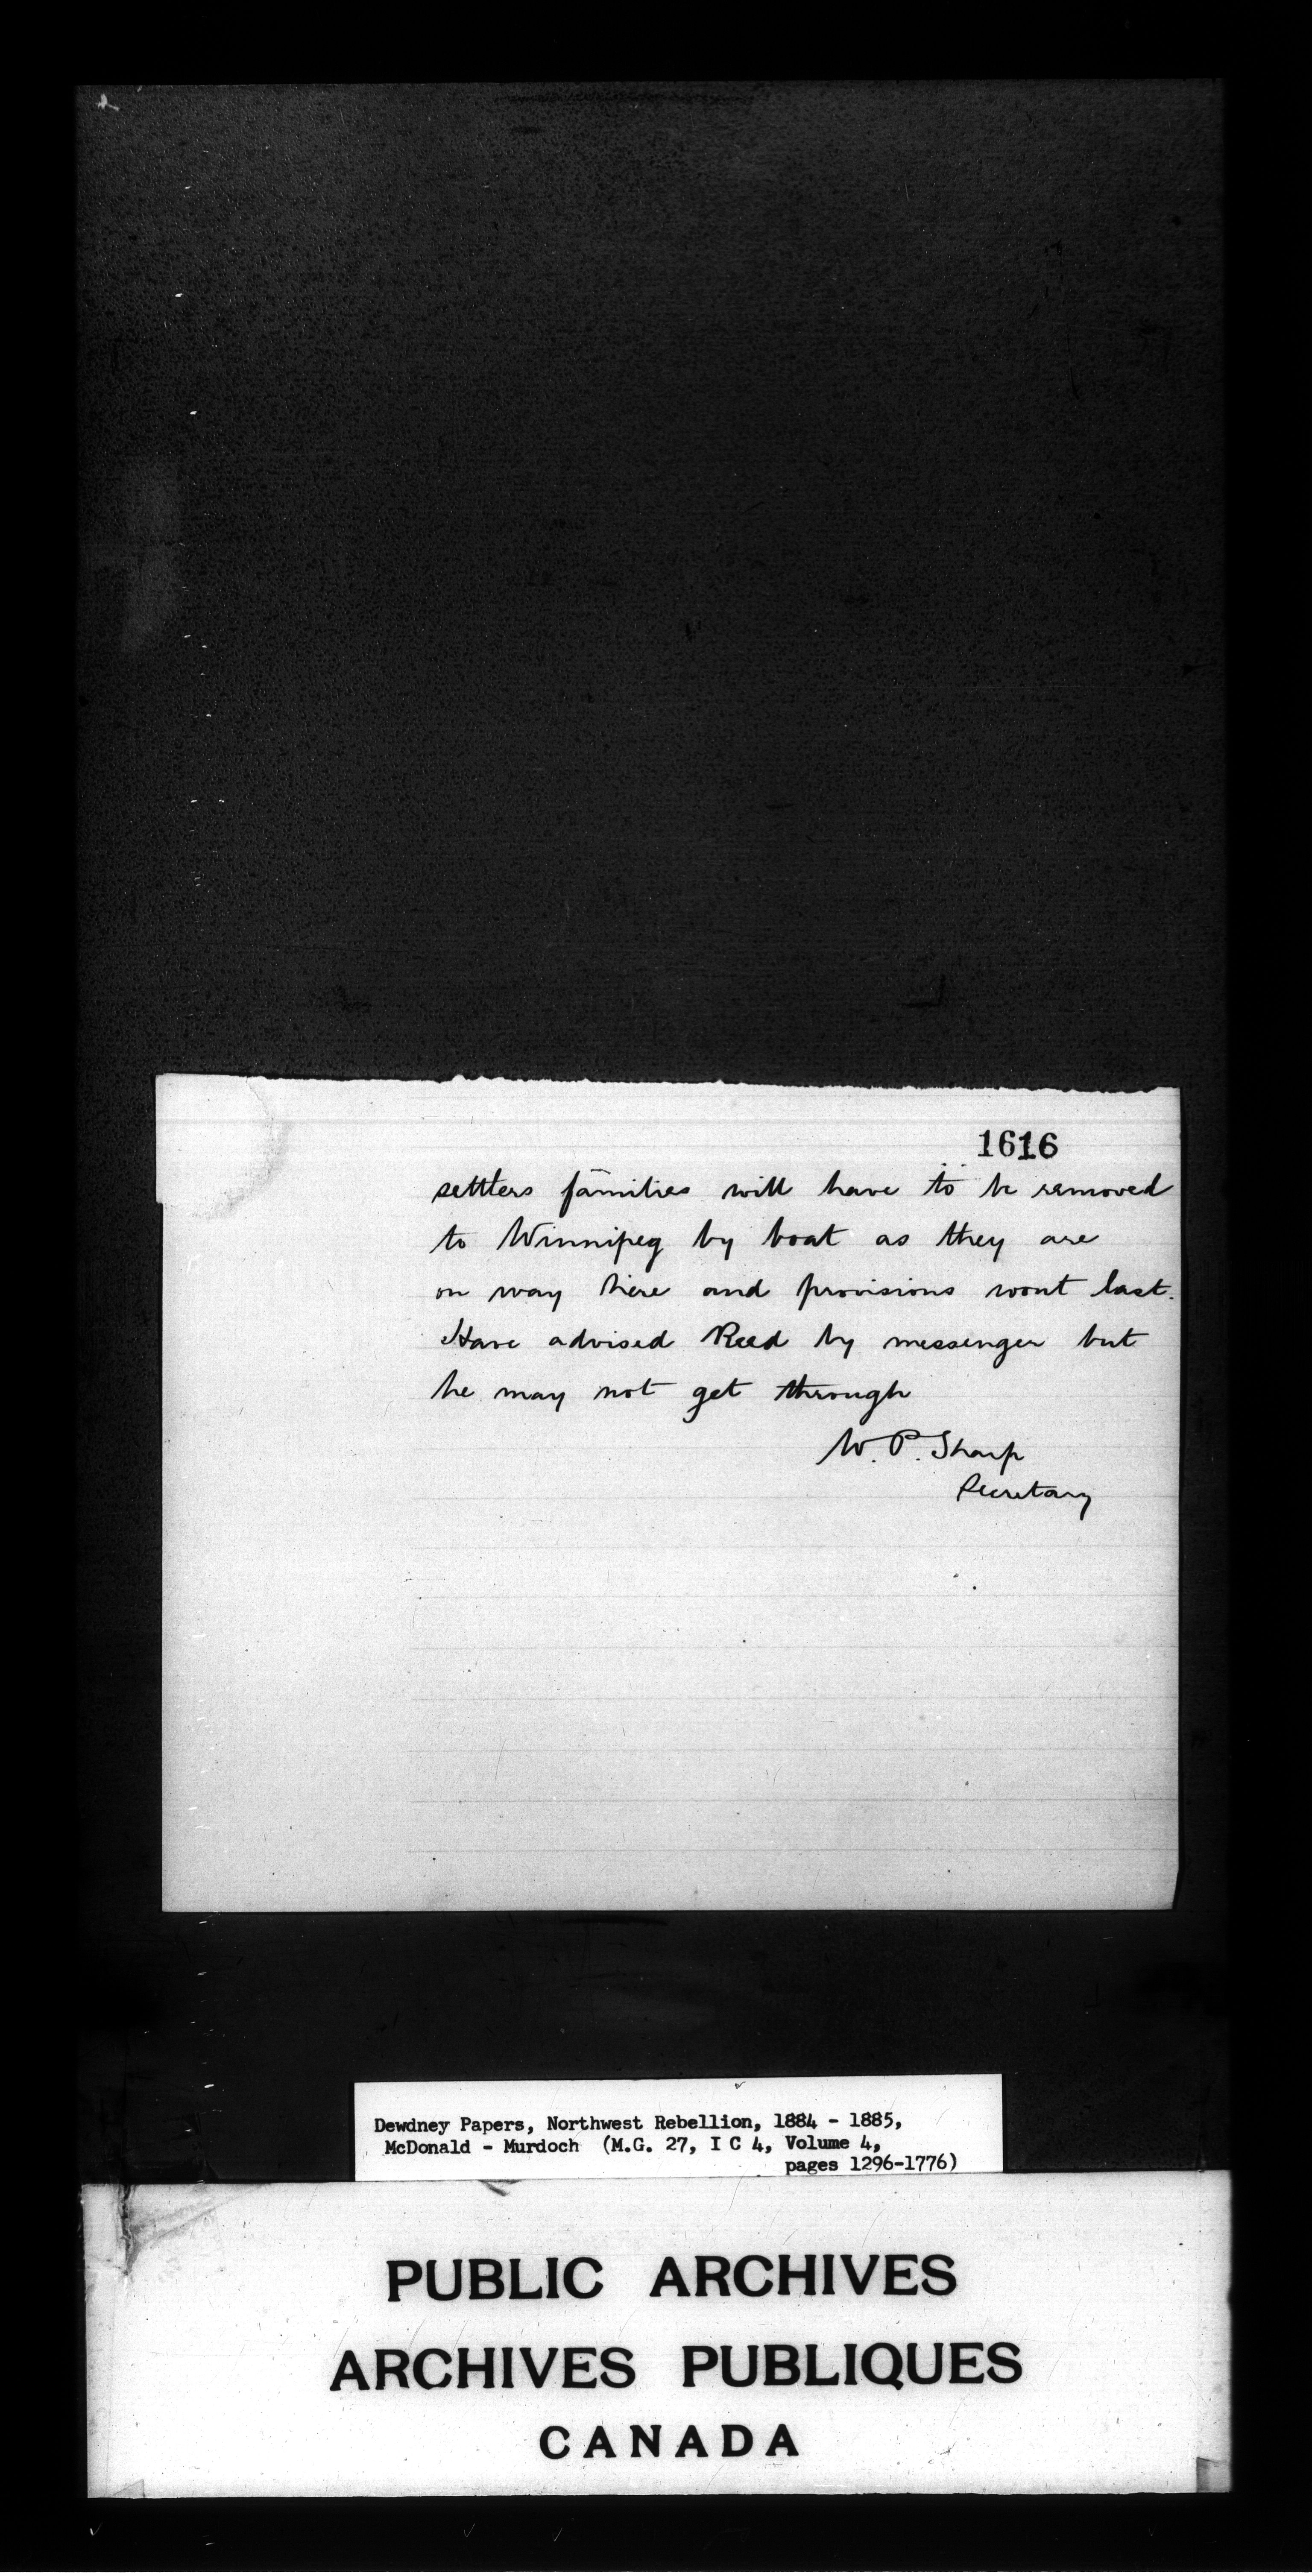 1616
settlers families will have to be removed
to Winnipeg by boat as they are
on way here and provisions wont last.
Have advised Reed by messenger but
he may not get through
W. P. Sharp
Secretary
Dewdney Papers, Northwest Rebellion, 1884 - 1885,
McDonald - Murdoch (M.G. 27, I C 4, Volume 4,
pages 1296-1776)
PUBLIC ARCHIVES
ARCHIVES PUBLIQUES
CANADA